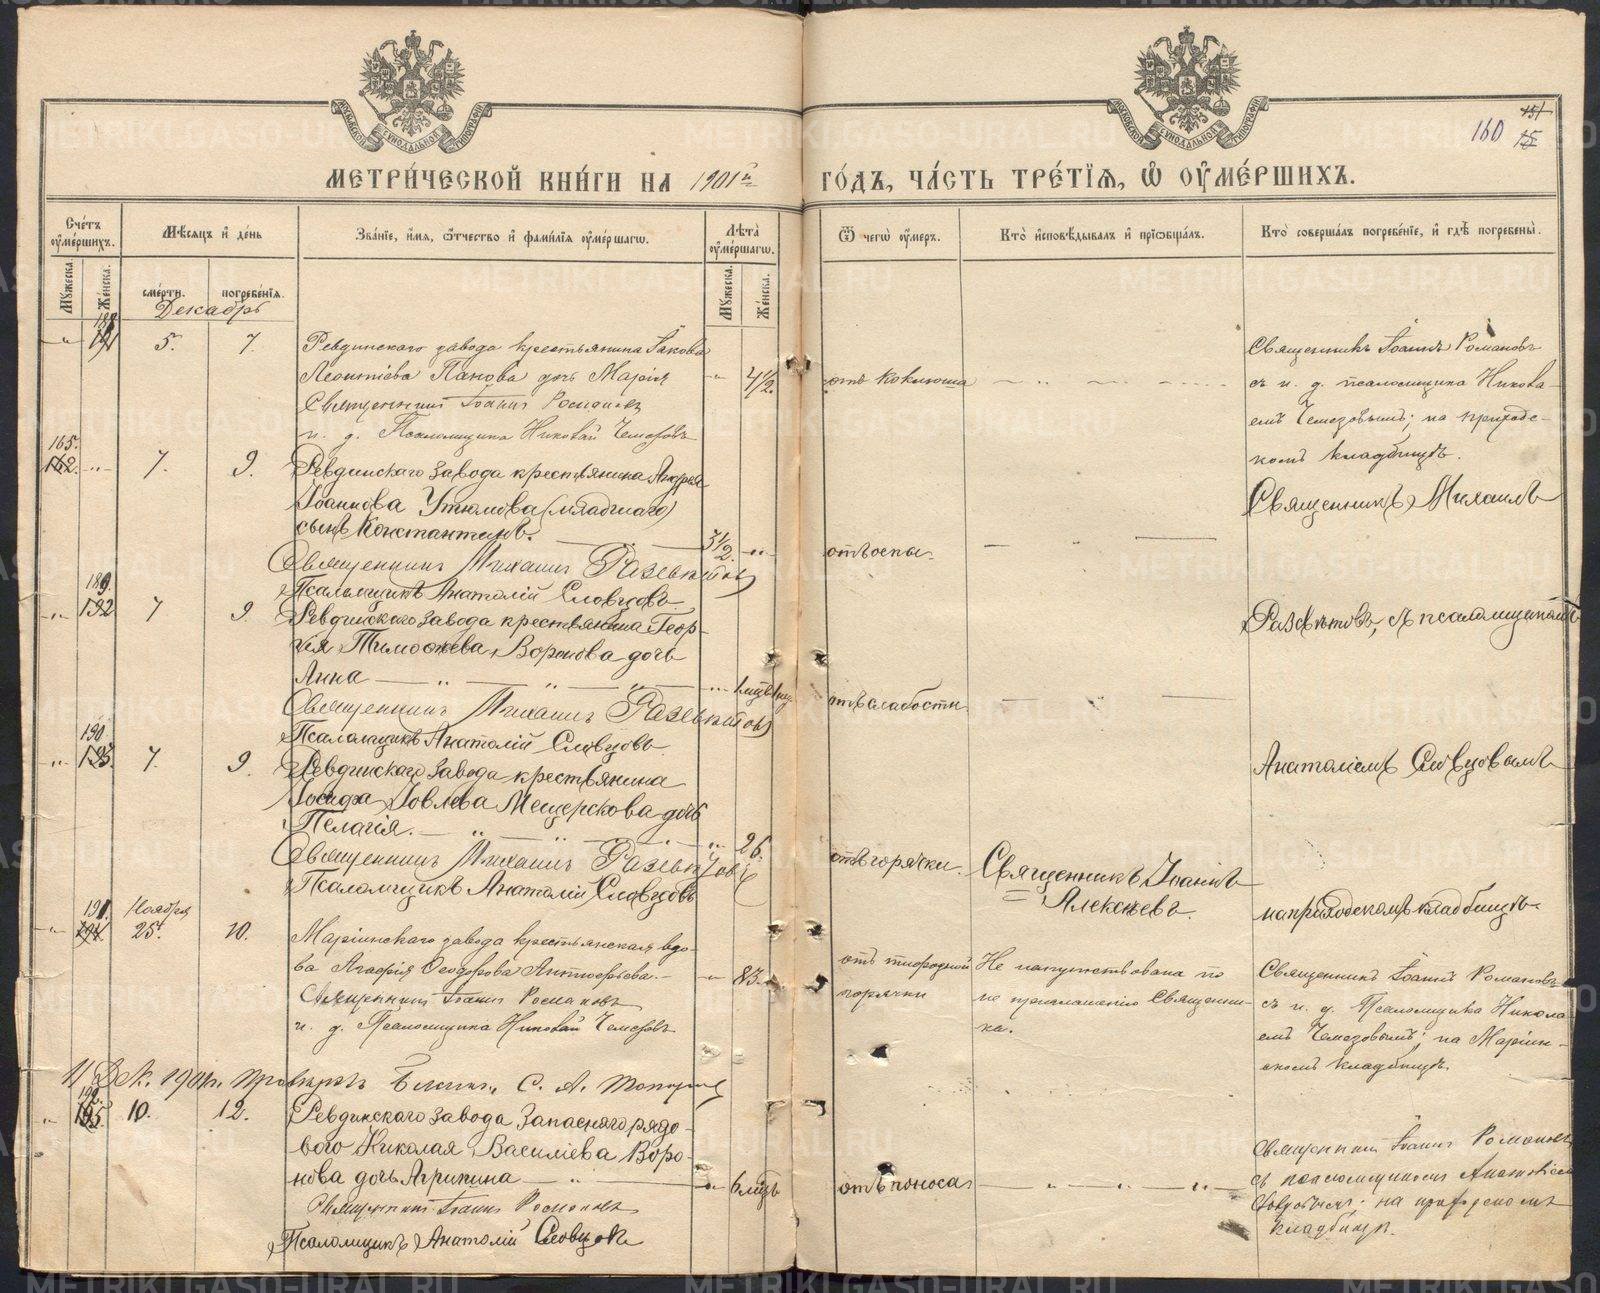 МЕТРИ́ЧЕСКОЙ КНИ́ГИ НА 1901й ГО́ДЪ, ЧА́СТЬ ТРЕ́ТІѦ, Ѡ҆ ОУ҆МЕ́РШИХЪ.
160
Сче́тъ оу҆ме́ршихъ.
Мѣ́сяцъ и҆ де́нь
Зва́ніе, и҆́мя, ѻ҆́тчество и҆ фами́лія оу҆ме́ршагѡ.
Лѣ́та оу҆ме́ршагѡ.
Ѿ чегѡ̀ оу҆́меръ.
Кто̀ и҆сповѣ́дывалъ и҆ прїѡбща́лъ.
Кто̀ соверша́лъ погребе́ніе, и҆ гдѣ̀ погребены̀.
Мꙋ́жеска.
Же́нска.
сме́рти.
погребе́нія.
Мꙋ́жеска.
Же́нска.
Декабрь
188
191
5.
7.
Ревдинскаго завода крестьянина Iакова
Леонтіева Панова дочь Марія
Священникъ Іоаннъ Романовъ
и. д. Псаломщика Николай Чемезовъ
4 1/2.
отъ коклюша
Священникъ Іоаннъ Романовъ
съ и. д. псаломщика Никола-
емъ Чемезовымъ; на приходс-
комъ кладбищѣ.
165.
162.
7.
9.
Ревдинскаго завода крестьянина Андрея
Іоаннова Утюмова (младшаго)
сынъ Константинъ.
Священникъ Михаилъ Разсвѣтовъ
Псаломщикъ Анатолій Словцовъ
3 1/2.
отъ оспы.
Священникъ Михаилъ
189.
192
7
9.
Ревдинскаго завода крестьянина Геор-
гія Тимоѳеева Воронова дочь
Анна
Священникъ Михаилъ Разсвѣтовъ
Псаломщикъ Анатолій Словцовъ
отъ слабости
Разсвѣтовъ, съ псаломщикомъ
190
193.
7.
9.
Ревдинскаго завода крестьянина
Іосифа Іовлева Мещерскова дочь
Пелагія.
Священникъ Михаилъ Разсвѣтовъ
Псаломщикъ Анатолій Словцовъ
26.
отъ горячки.
Священникъ Іоаннъ
Алексѣевъ.
Анатоліемъ Словцовымъ
на приходскомъ кладбищѣ.
191.
194
Ноября
25.
10.
Маріинскаго завода крестьянская вдо-
ва Агафія Ѳеодорова Антоѳьева.
Священникъ Іоаннъ Романовъ
и. д. Псаломщика Николай Чемезовъ
83.
отъ тифродной
горячки
Не напутствована по
не приглашенію Священни-
ка.
Священникъ Іоаннъ Романовъ
съ и. д. Псаломщика Никола-
емъ Чемезовымъ; на Маріин-
скомъ кладбищѣ.
11 Дек. 1901г. Провѣрялъ С. А.
192.
195
10.
12.
Ревдинскаго завода запаснаго рядо-
вого Николая Васильева Воро-
нова дочь Агрипина
Священникъ Іоаннъ Романовъ
Псаломщикъ Анатолій Словцовъ
6 мцъ
отъ поноса
Священникъ Іоаннъ Романовъ
съ псаломщикомъ Анатоліемъ
Словцовымъ; на приходскомъ
кладбищѣ.
METRIKI.GASO-URAL.RU